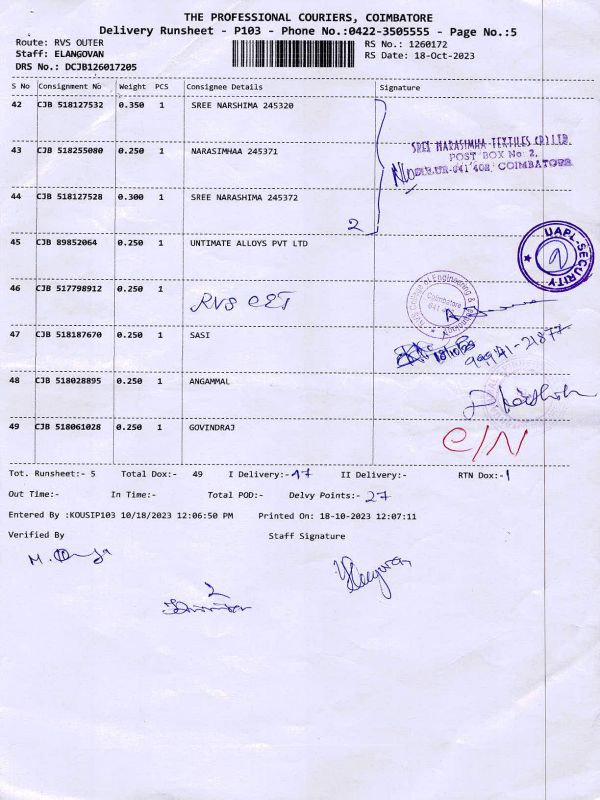 THE PROFESSIONAL COURIERS, COIMBATORE
Delivery Runsheet - P103 - Phone No.:0422-3505555 - Page No.:5
Route: RVS OUTER RS No.: 1260172
Staff: ELANGOVAN RS Date: 18-Oct-2023
DRS No.: DCJB126017205
S No Consignment No Weight PCS Consignee Details Signature
42 CJB 518127532 0.350 1 SREE NARSHIMA 245320
SREE NARASIMHA TEXTILES (P) LTD
43 CJB 518255080 0.250 1 NARASIMHAA 245371
POST BOX No 2,
COIMBATORE
44 CJB 518127528 0.300 1 SREE NARASHIMA 245372
2
45 CJB 89852064 0.250 1 UNTIMATE ALLOYS PVT LTD
UAPL-SECURITY
46 CJB 517798912 0.250 1 RVS CET
College of Engineering &
Coimbatore
47 CJB 518187670 0.250 1 SASI
99941-21877
48 CJB 518028895 0.250 1 ANGAMMAL
49 CJB 518061028 0.250 1 GOVINDRAJ C/N
Tot. Runsheet:- 5 Total Dox:- 49 I Delivery:- 47 II Delivery:- RTN Dox:- 1
Out Time:- In Time:- Total POD:- Delvy Points:- 27
Entered By :KOUSIP103 10/18/2023 12:06:50 PM Printed On: 18-10-2023 12:07:11
Verified By Staff Signature
2